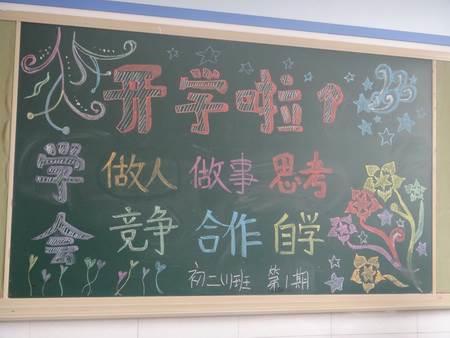 开学啦?
学会
做人 做事 思考
竞争 合作 自学
初二(1)班 第1期